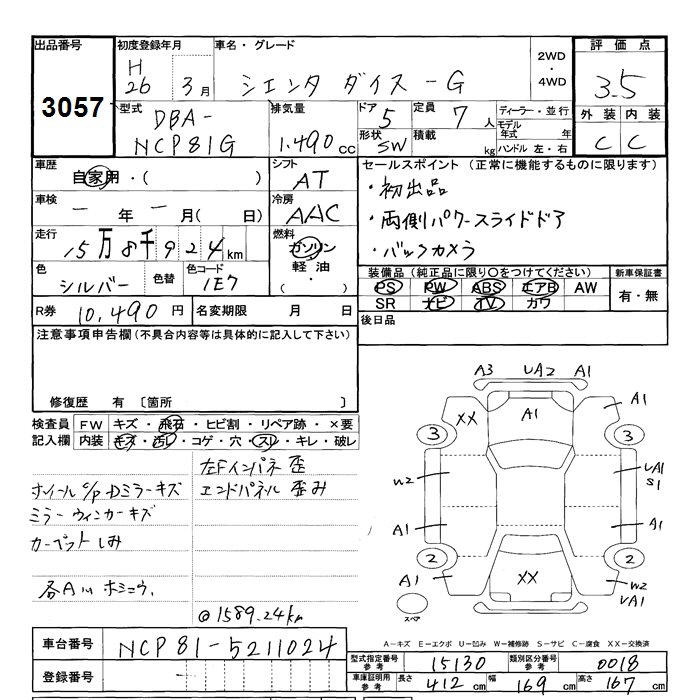 出品番号 初度登録年月 車名・グレード 2WD・4WD 評価点
3057 H26 3月 シエンタ ダイス-G 3.5
型式 DBA-NCP81G 排気量 1.490cc ドア 5 定員 7人 ディーラー・並行
形状 SW 積載 kg モデル年式 年 ハンドル 左・右
外装 内装
C C
車歴 自家用・( ) シフト AT
車検 一年一月( 日) 冷房 AAC
走行 15万8千924km 燃料 ガソリン 軽油・( )
色 シルバー 色替 色コード 1E7
R券 10,490円 名変期限 月 日
セールスポイント (正常に機能するものに限ります)
・初出品
・両側パワースライドドア
・バックカメラ
装備品(純正品に限り○をつけてください) 新車保証書
PS PW ABS エアB AW 有・無
SR ナビ TV カワ
後日品
注意事項申告欄(不具合内容等は具体的に記入して下さい)
修復歴 有 〔箇所 〕
検査員記入欄 FW キズ・飛石・ヒビ割・リペア跡・×要
内装 キズ・汚レ・コゲ・穴・スレ・キレ・破レ
左Fインパネ歪
ホイールc/p Dミラーキズ エンドパネル歪み
ミラーウィンカーキズ
カーペットしみ
@1589.24km
A3 UA2 A1
XX A1 A1
3 3
W2 UA1 S1
A1 A1
2 2
A1 XX W2 UA1
スペア
A-キズ E-エクボ U-凹み W-補修跡 S-サビ C-腐食 XX-交換済
車台番号 NCP81-5211024
登録番号 -
型式指定番号参考 15130 類別区分番号参考 0018
車庫証明用参考 長さ 412cm 幅 169cm 高さ 167cm